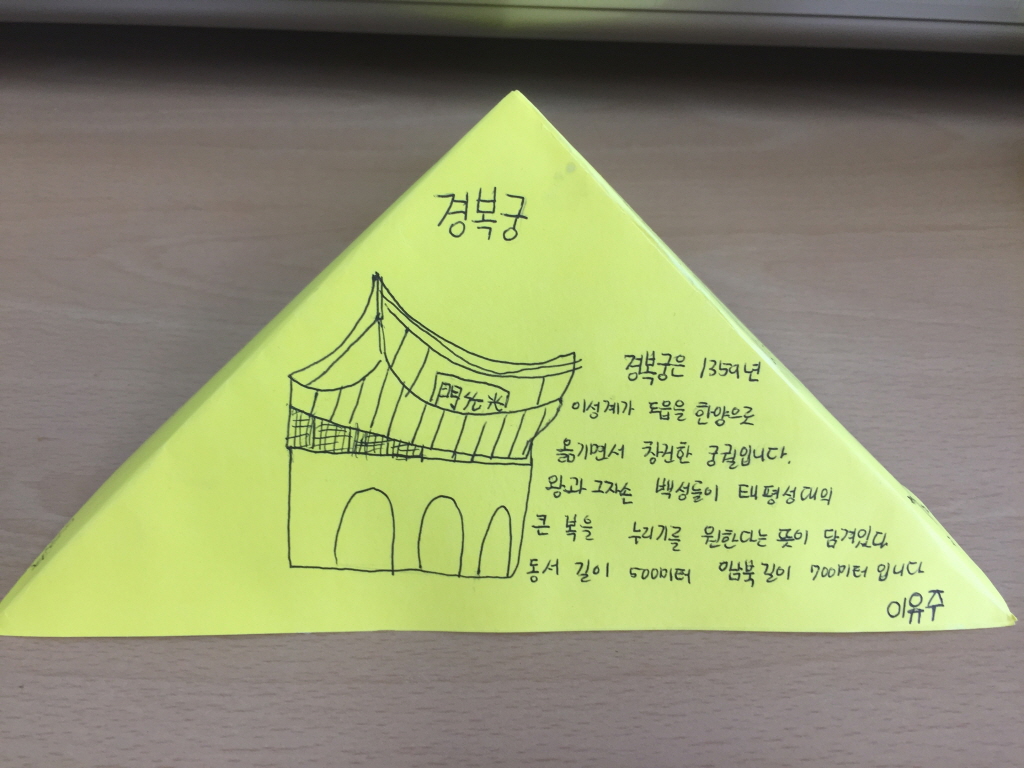 경복궁
門化光
경복궁은 1359년
이성계가 도읍을 한양으로
옮기면서 창건한 궁궐입니다.
왕과 그자손 백성들이 태평성대의
큰 복을 누리기를 원한다는 뜻이 담겨있다
동서 길이 500미터 남북길이 700미터 입니다
이유주